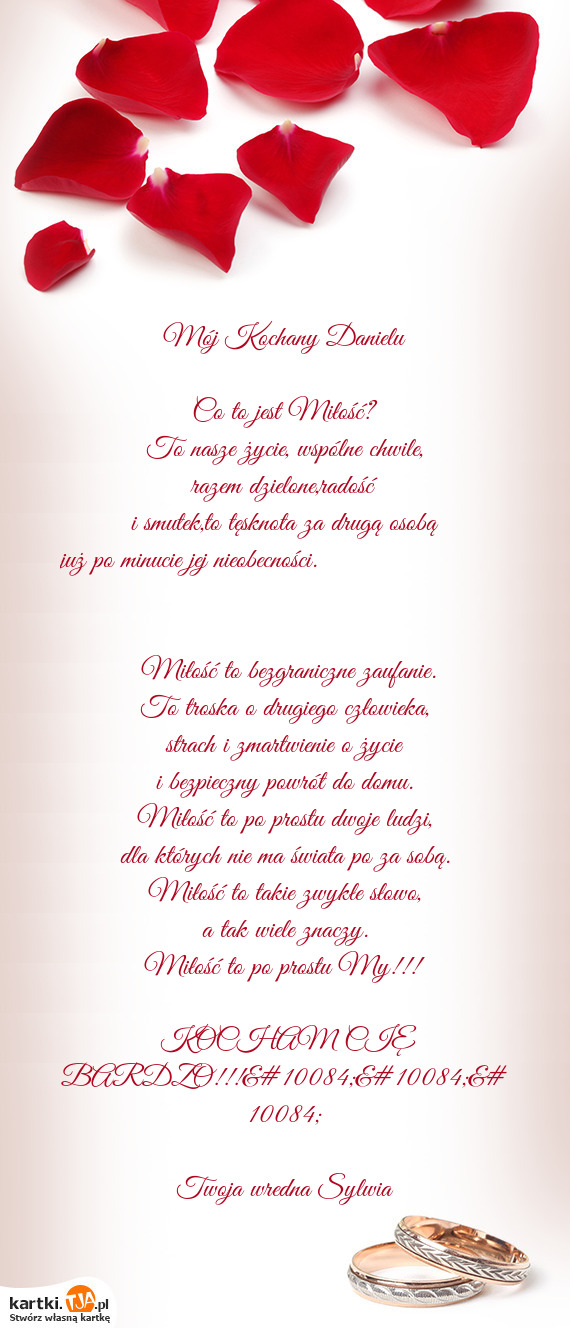 Mój Kochany Danielu
Co to jest Miłość?
To nasze życie, wspólne chwile,
razem dzielone,radość
i smutek,to tęsknota za drugą osobą
już po minucie jej nieobecności.
Miłość to bezgraniczne zaufanie.
To troska o drugiego człowieka,
strach i zmartwienie o życie
i bezpieczny powrót do domu.
Miłość to po prostu dwoje ludzi,
dla których nie ma świata po za sobą.
Miłość to takie zwykłe słowo,
a tak wiele znaczy.
Miłość to po prostu My!!!
KOCHAM CIĘ
BARDZO!!!&# 10084;&# 10084;&#
10084;
Twoja wredna Sylwia
kartki.TJA.pl
Stwórz własną kartkę